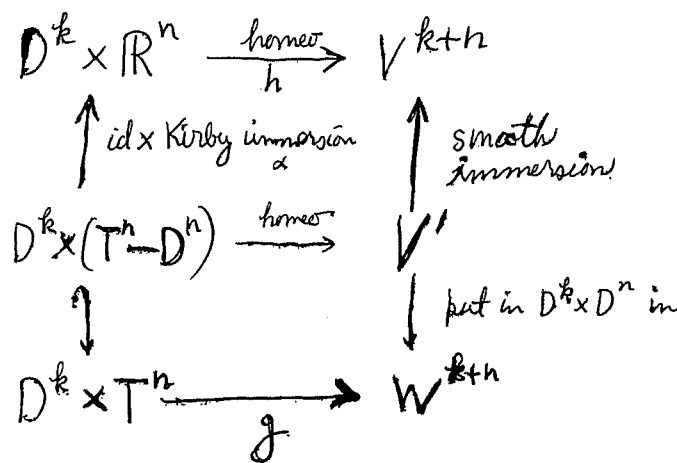 D^k × ℝ^n homeo h V^{k+n}
id × Kirby immersion α smooth immersion
D^k × (T^n − D^n) homeo V'
put in D^k × D^n in
D^k × T^n g W^{k+n}